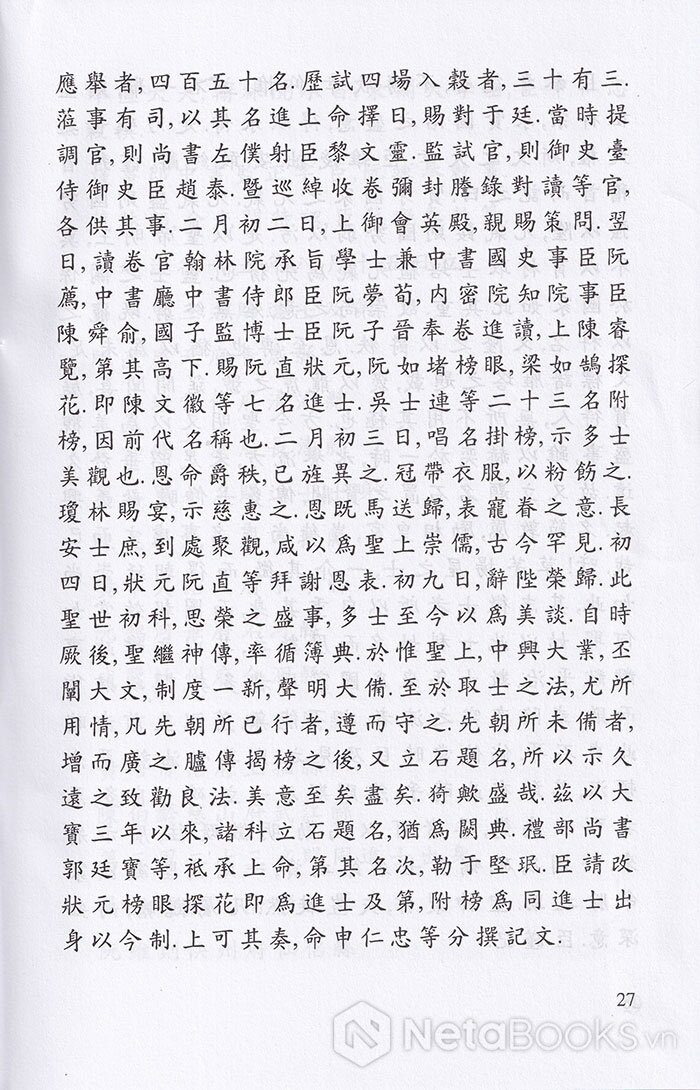 應舉者,四百五十名.歷試四場入彀者,三十有三.
蒞事有司,以其名進上命擇日,賜對于廷.當時提
調官,則尚書左僕射臣黎文靈.監試官,則御史臺
侍御史臣趙泰.暨巡綽收卷彌封謄錄對讀等官,
各供其事.二月初二日,上御會英殿,親賜策問.翌
日,讀卷官翰林院承旨學士兼中書國史事臣阮
廌,中書廳中書侍郎臣阮夢荀,内密院知院事臣
陳舜俞,國子監博士臣阮子晉奉卷進讀,上陳睿
覽,第其高下.賜阮直狀元,阮如堵榜眼,梁如鵠探
花.即陳文徽等七名進士.吳士連等二十三名附
榜,因前代名稱也.二月初三日,唱名掛榜,示多士
美觀也.恩命爵秩,已旌異之.冠帶衣服,以粉飭之.
瓊林賜宴,示慈惠之.恩既馬送歸,表寵眷之意.長
安士庶,到處聚觀,咸以爲聖上崇儒,古今罕見.初
四日,狀元阮直等拜謝恩表.初九日,辭陛榮歸.此
聖世初科,思榮之盛事,多士至今以爲美談.自時
厥後,聖繼神傳,率循簿典.於惟聖上,中興大業,丕
闡大文,制度一新,聲明大備.至於取士之法,尤所
用情,凡先朝所已行者,遵而守之.先朝所未備者,
增而廣之.臚傳揭榜之後,又立石題名,所以示久
遠之致勸良法.美意至矣盡矣.猗歟盛哉.茲以大
寶三年以來,諸科立石題名,猶爲闕典.禮部尚書
郭廷寶等,祇承上命,第其名次,勒于堅珉.臣請改
狀元榜眼探花即爲進士及第,附榜爲同進士出
身以今制.上可其奏,命申仁忠等分撰記文.
27
NetaBooks.vn